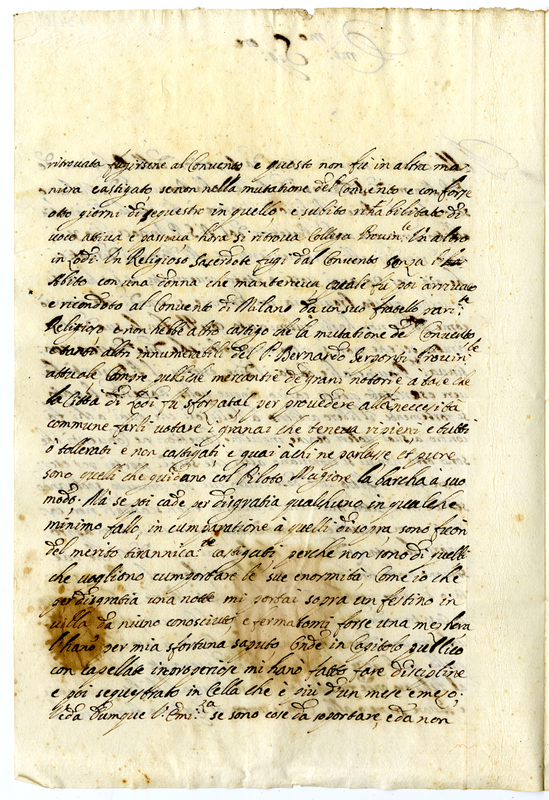 ritrovata fugirsene al Convento e questo non fù in altra ma-
niera castigato senon nella mutatione del Convento e con forse
otto giorni di sequestro in quello, e subito rihabilitato di
voce attiva e passiva hora si ritrova Collega Provin.le Un altro
in Lodi Un Religioso Sacerdote fugì dal Convento senza l'
Abito con una donna che manteneva quale fu poi arrivato
e ricondoto al Convento di Milano da un suo fratello pari.te
Religioso e non hebbe altro castigo che la mutatione del Convento
e tanti altri innumerabili del P. Bernardo Provin.le
attuale Compre publiche mercantie de grani notorie a da, e che
la Città di Lodi fu sforzata per provedere alla necessità
commune farli votare i granai che teneva ripieni e tutti
ò tollerati e non castigati e guai à chi ne parlasse et pure
sono quelli che guidano col Piloto Magiore la barcha à suo
modo. Mà se poi cade per disgratia qualchuno in qualche
minimo fallo, in cumparatione à quelli di sopra sono fuori
del merito tirannica.te castigati perche non sono di quelli
che vogliono cumportare le sue enormità Come io che
per disgratia una notte mi portai sopra un festino in
villa da niuno conosciuto e fermatomi forse una mezhora
l'hano per mia sfortuna saputo Onde in Capitolo publico
con capellate improperiose mi hano fatto fare discipline
e poi sequestrato in Cella che è più d'un mese e mezo;
Veda dumque l'Emi.za se sono cose da soportare, e da non